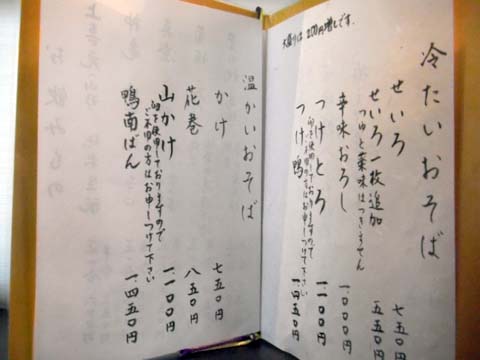 冷たいおそば
せいろ 七五〇円
せいろ一枚追加 五五〇円
つゆと薬味はつきません
辛味おろし 一、〇〇〇円
つけとろ 一、一〇〇円
卵を使用しておりますので
ご不用の方はお申しつけて下さい
つけ鴨 一、四五〇円
大盛りは200円増しです。
温かいおそば
かけ 七五〇円
花巻 八五〇円
山かけ 一、一〇〇円
卵を使用しておりますので
ご不用の方はお申しつけて下さい
鴨南ばん 一、四五〇円
お飲みもの